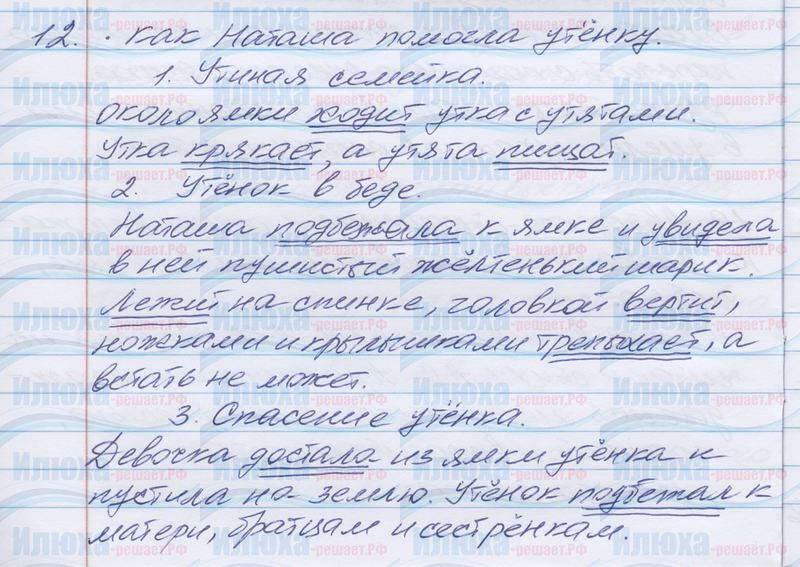 12. · Как Наташа помогла утёнку.
1. Утиная семейка.
Около ямки ходит утка с утятами.
Утка крякает, а утята пищат.
2. Утёнок в беде.
Наташа подбежала к ямке и увидела
в ней пушистый жёлтенький шарик.
Лежит на спинке, головкой вертит,
ножками и крылышками трепыхает, а
встать не может.
3. Спасение утёнка.
Девочка достала из ямки утёнка и
пустила на землю. Утёнок подбежал к
матери, братцам и сестрёнкам.